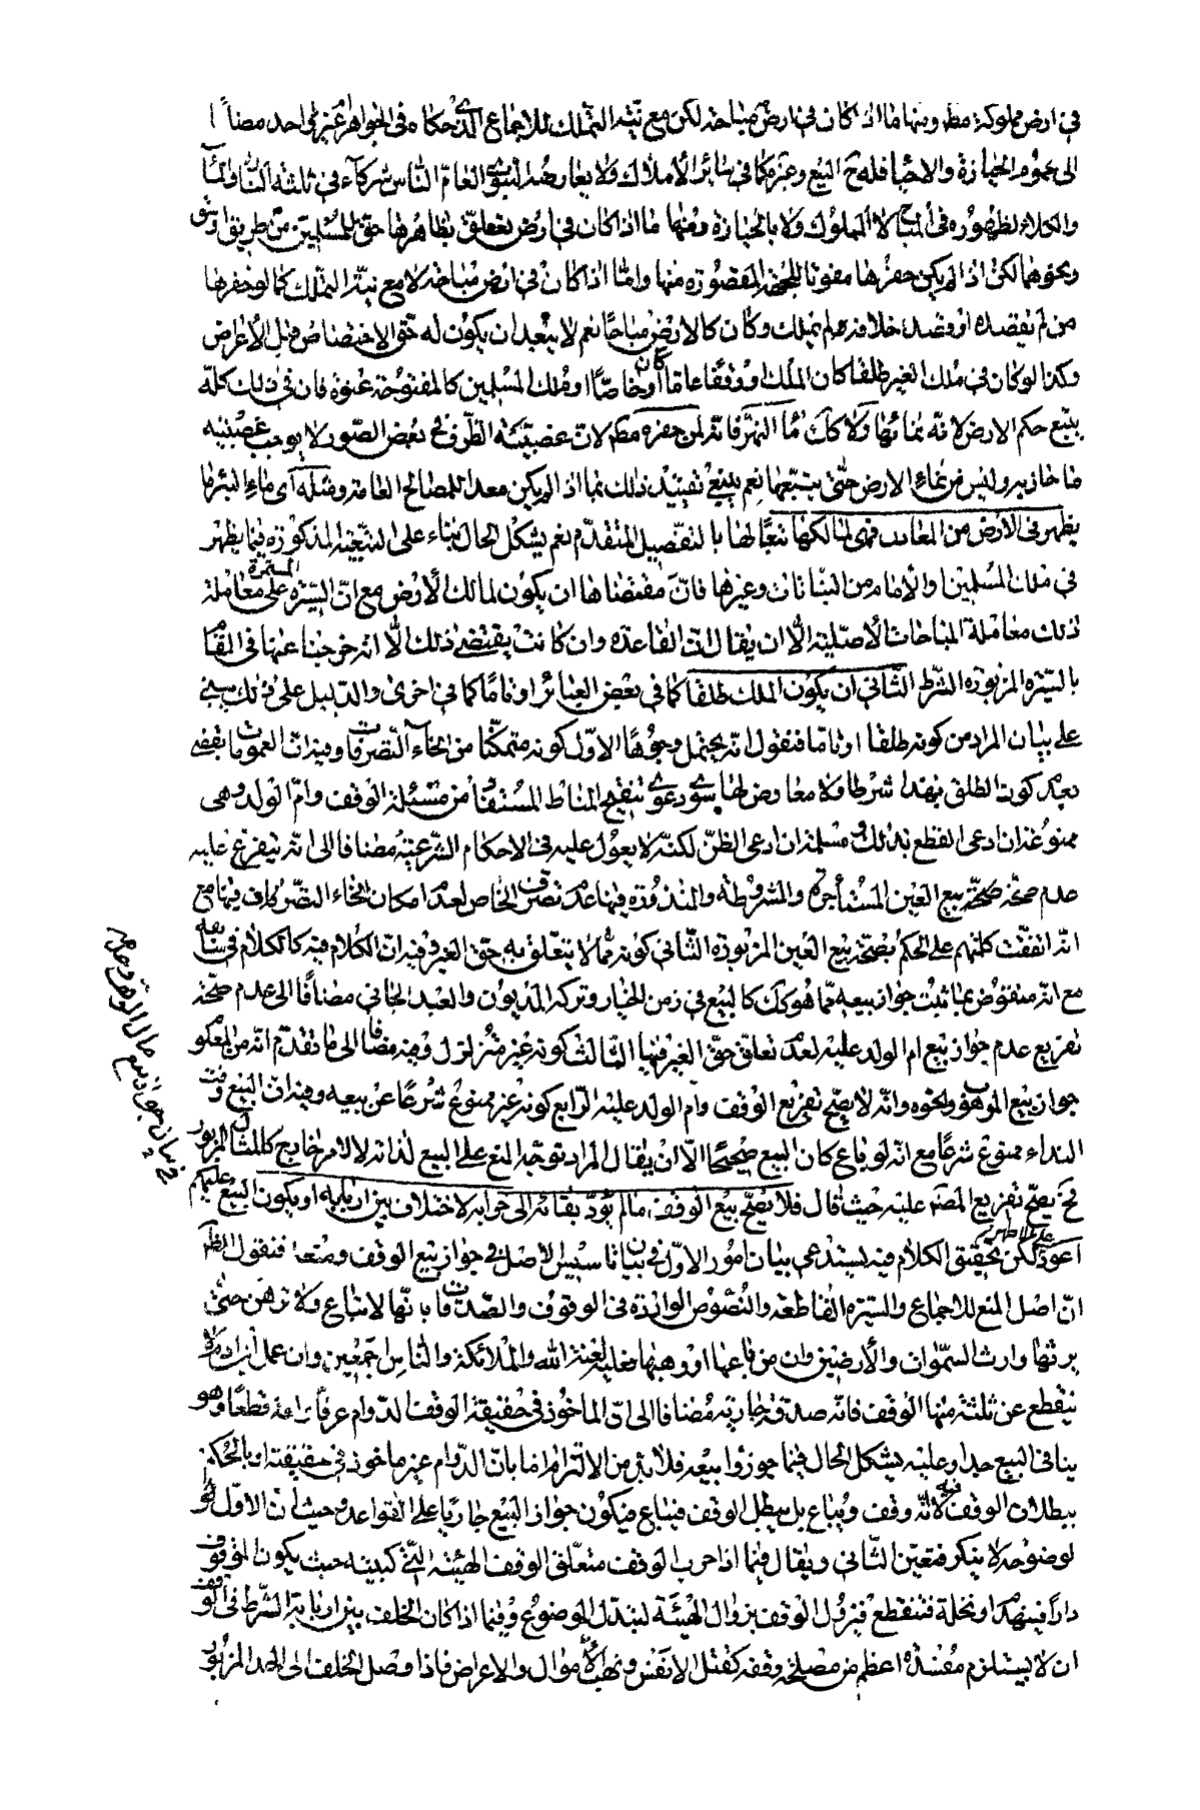 في ارض مملوكة مط ومنها ما اذا كان في ارض مباحة لكن مع نية التملك للاجماع الذي حكاه في الجواهر عن غير واحد مضافا
الى عموم الحيازة والاحيا فله ح البيع وغيره كما في سائر الأملاك ولا يعارضه النبوي العام الناس شركاء في ثلثة النار والماء
والكلاء لظهوره في المباح لا المملوك ولا بالحيازة ومنها ما اذا كان في ارض تعلق بظاهرها حق للمسلمين من طريق او سوق
ونحوهما لكن اذا لم يكن حفرها مفوتا للجهة المقصورة منها واما اذا كان في ارض مباحة لا مع نية التملك كما لو حفرها
من لم يقصده او قصد خلافه فلم يملك وكان كالارض مباحا نعم لا يبعد ان يكون له حق الاختصاص قبل الأعراض
وكذا لو كان في ملك الغير طلقا كان الملك او وقفا عاما كان او خاصا او ملك المسلمين كالمفتوحة عنوة فان في ذلك كله
يتبع حكم الارض لانه نمائها ولا كك ماء النهر فانه لمن حفره مط لان غصبيته الظرف في بعض الصور لا يوجب غصبيته
ما حازه وليس من نماء الارض حتى يتبعها نعم ينبغي تقييد ذلك بما اذا لم يكن معدا للمصالح العامة ومثله اى ماء البئر ما
يظهر في الارض من المعادن فهي لمالكها تبعا لها بالتفصيل المتقدم نعم يشكل الحال بناء على التبعية المذكورة فيما يظهر
في ملك المسلمين والأمام من النباتات وغيرها فان مقتضاها ان يكون لمالك الأرض مع ان السيرة المستمرة على معاملة
ذلك معاملة المباحات الأصلية الا ان يقال ان القاعدة وان كانت يقتضى ذلك الا انه خرجنا عنها في المقام
بالسيرة المزبورة الشرط الثاني ان يكون الملك طلقا كما في بعض العبائر او تاما كما في اخرى والدليل على ذلك يبتني
على بيان المراد من كونه طلقا او تاما فنقول انه يحتمل وجوها الاول كونه متمكنا من انحاء التصرفات وفيه ان العمومات يقضى
بعدم كون الطلق بهذا شرطا ولا معارض لها سوى دعوى تنقيح المناط المستفاد من مسئلة الوقف وام الولد وهى
ممنوعة ان ادعى القطع بذلك ومسلمة ان ادعى الظن لكنه لا يعول عليه في الاحكام الشرعية مضافا الى انه يتفرع عليه
عدم صحة بيع العين المستأجرة والمشروطة والمنذورة فيها عدم تصرف الخاص لعدم امكان انحاء التصرفات فيها مع
انه اتفقت كلمتهم على الحكم بصحة بيع العين المزبورة الثاني كونه مما لا يتعلق به حق الغير وفيه ان الكلام فيه كالكلام في سابقه
مع انه منقوض بما ثبت جواز بيعه مما هو كك كالبيع في زمن الخيار وتركة المديون والعبد الجاني مضافا الى عدم صحة
تفريع عدم جواز بيع ام الولد عليه لعدم تعلق حق الغير فيها الثالث كونه غير متزلزل وفيه مضافا الى ما تقدم انه من المعلوم
جواز بيع الموهوب ونحوه وانه لا يصح تفريع الوقف وام الولد عليه الرابع كونه غير ممنوع شرعا عن بيعه وفيه ان البيع وقت
النداء ممنوع شرعا مع انه لو باع كان البيع صحيحا الا ان يقال المراد توجه المنع على البيع لذاته لا لامر خارج كالمثال المزبور
فح يصح تفريع المصنف عليه حيث قال فلا يصح بيع الوقف ما لم يؤد بقائه الى خرابه لاختلاف بين اربابه او يكون البيع عليكم
اعود على الاظهر لكن تحقيق الكلام فيه يستدعي بيان امور الاول في بيان تاسيس الاصل في جواز بيع الوقف ومنعه فنقول الظاهر
ان اصل المنع للاجماع والسيرة القاطعة والنصوص الواردة في الوقوف والصدقات بانها لا تباع ولا توهب حتى
يرثها وارث السموات والأرضين وان من باعها او وهبها فعليه لعنة الله والملائكة والناس اجمعين وان عمل ابن ادم لا
ينقطع عن ثلثة منها الوقف فانه صدقة جارية مضافا الى ان الماخوذ في حقيقة الوقف الدوام عرفا قطعا وهو
ينافى البيع جدا وعليه يشكل الحال فيما جوزوا بيعه فلا بد من الالتزام اما بان الدوام غير ماخوذ في حقيقته او بالحكم
ببطلان الوقف فيه لا انه وقف ويباع بل يبطل الوقف فيباع فيكون جواز البيع جاريا على القواعد وحيث ان الاول
لوضوحه لا ينكر فتعين الثاني ويقال فيما اذا خرب الوقف متعلق الوقف الهيئة التي كبينه حيث يكون الموقوف
دارا فينهدم او نخلة فتنقطع فيزول الوقف بزوال الهيئة لتبدل الموضوع وفيما اذا كان الخلف بين اربابه الشرط في الوقف
ان لا يستلزم مفسدة اعظم من مصلحة وقفه كقتل الانفس ونهب الأموال والاعراض فاذا وصل الخلف الى الحد المزبور
في بيان جواز بيع مال الوقف وعدمه